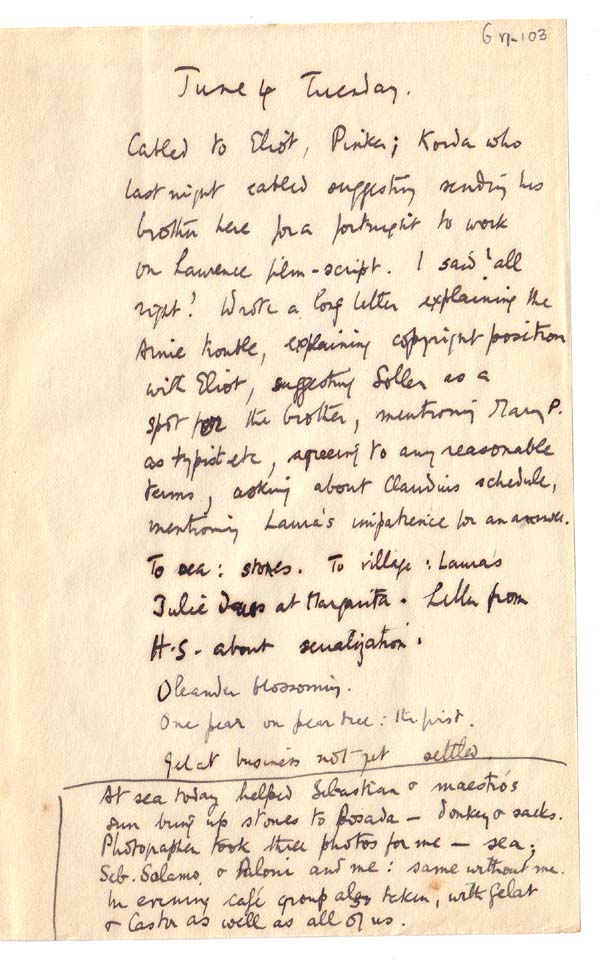 June 4 Tuesday.
Cabled to Eliot, Pinker; Korda who
last night cabled suggesting sending his
brother here for a fortnight to work
on Lawrence film-script. I said 'all
right'. Wrote a long letter explaining the
Arnie, explaining copyright position
with Eliot, suggesting Soller as a
spot for the brother, mentioning Mary P.
as typist etc, agreeing to any reasonable
terms, asking about Claudius schedule,
mentioning Laura's impatience for an answer.
To sea: stones. To village: Laura's
Julie at Margarita. Letter from
H.S. about serialization.
Oleander blossoming.
One pear on pear tree: the first.
Gelat business not yet settled.
At sea today helped Sebastian & maestro's
son bring up stones to Posada – donkey & sacks.
Photographer took three photos for me – sea;
Seb. Salamo & and me: same without me.
In evening café group also taken, with Gelat
& Castor as well as all of us.